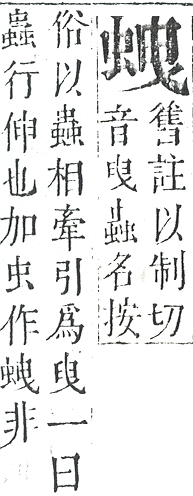 𧋟
舊註以制切
音曳蟲名按
俗以蟲相牽引爲曳一曰
蟲行伸也加虫作𧋟非